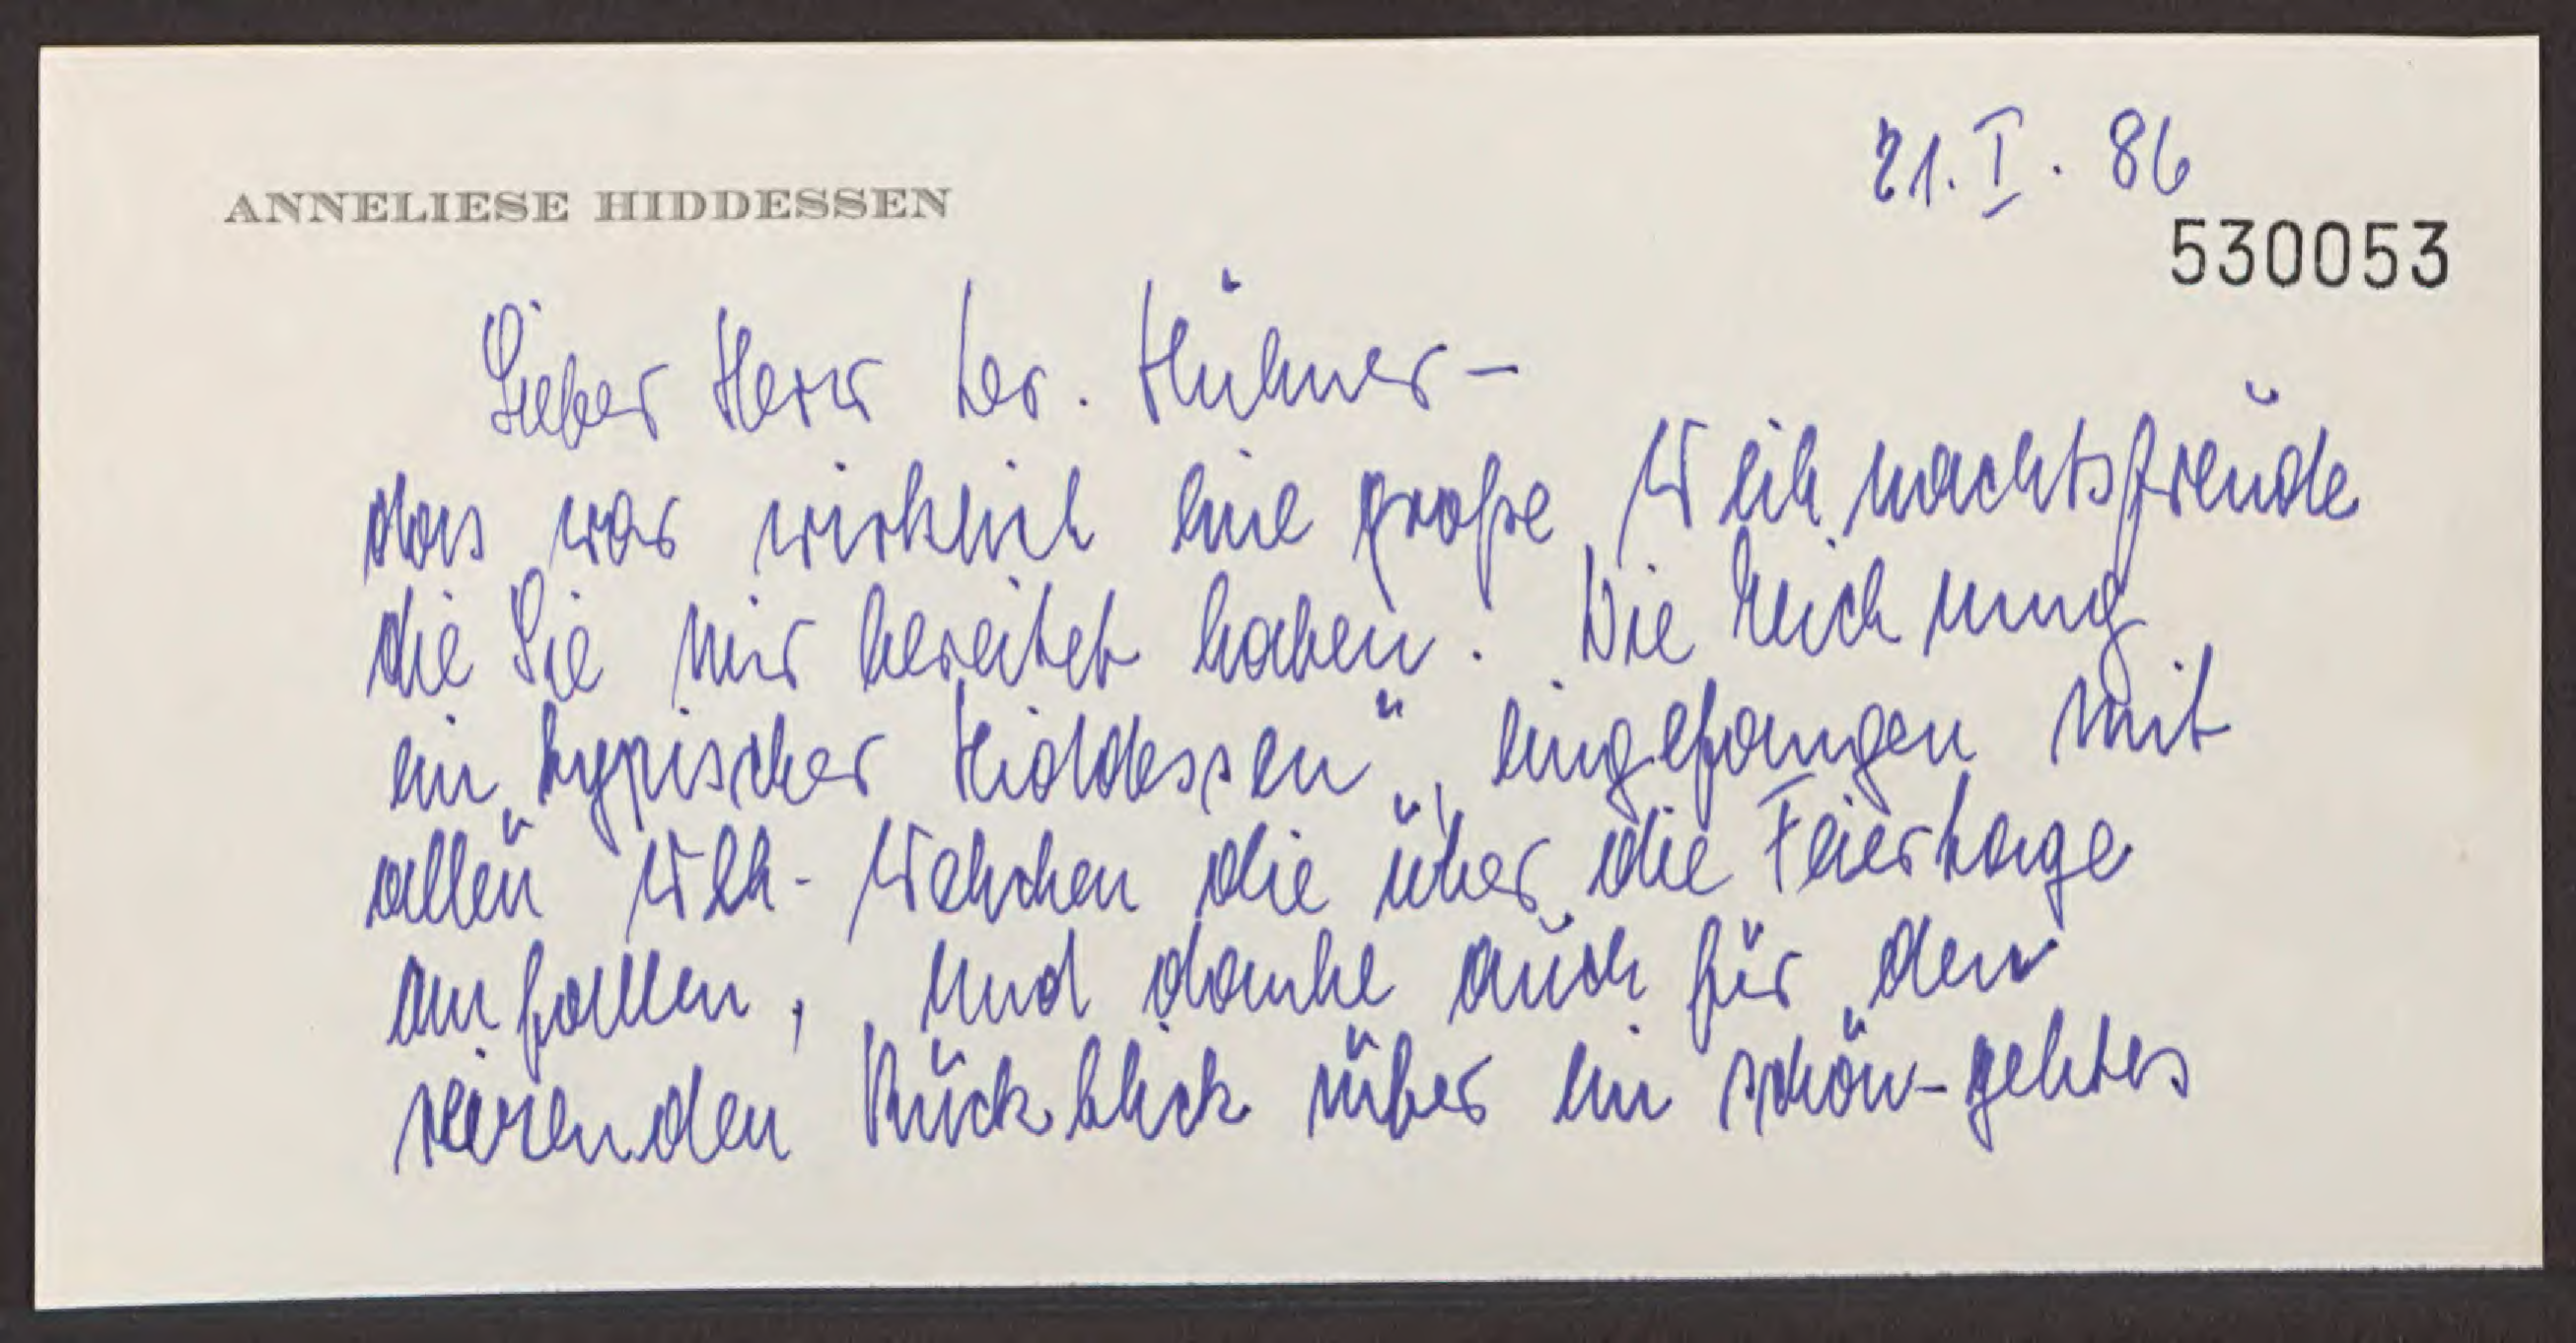 21. I. 86
ANNELIESE HIDDESSEN
530053
Lieber Herr Dr. Hübner –
das war wirklich eine große Weihnachtsfreude
die Sie mir bereitet haben. Die Zeichnung
ein „typischer Hiddessen“, eingefangen mit
allen Weh-Wehchen die über die Feiertage
anfallen, und danke auch für den
reizenden Rückblick über ein schön-